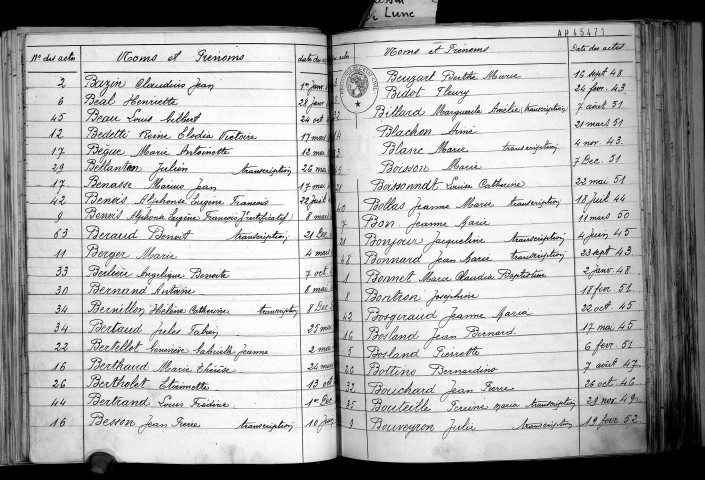 de Lune
AH45471
Nos des actes Noms et Prénoms dates des
2 Bazin Claudius Jean 1er janv
6 Beal Henriette 28 janv
45 Beau Louis Gilbert 24 oct
12 Bedetti Reine Elodia Victoire 17 mars
17 Bègue Marie Antoinette 12 mai
29 Bellanton Julien transcription 26 mai
17 Benasse Marius Jean 17 mai
42 Benois Alphonse Eugène François 22 juil
9 Benois Alphonse Eugène François Jt rectificatif) 8 mars
63 Beraud Benoit transcription 21 Dec
11 Berger Marie 4 mars
33 Berlioz Angelique Benoite 7 oct
30 Bernand Antoine 8 mai
34 Bernillon Hélène Catherine transcription 8 Dec
34 Bertaud Jules Fabien 25 mai
22 Bertellot Geneviève Gabrielle Jeanne 2 mai
16 Berthaud Marie Thérèse 24 mars
26 Berthelet Etiennette 13 oct
44 Bertrand Louis Frédéric 1er Dec
16 Besson Jean Pierre transcription 10 Juin
actes Noms et Prénoms Date des actes
Beuzart Berthe Marie 16 sept 48
Bidot Fleury 24 fev 43
Billard Marguerite Amélie (transcription) 7 août 51
Blachon Aimé 21 mars 51
Blanc Marie transcription 4 nov 43
Boisson Marie 7 Dec 51
21 Boissonnet Louise Catherine 22 mai 51
40 Bollas Jeanne Marie transcription 18 juil 44
7 Bon Jeanne Marie 11 mars 50
21 Bonjour Jacqueline transcription 4 juin 45
48 Bonnard Jean Marie transcription 23 sept 43
1 Bonnet Marie Claudia Baptistine 2 janv 48
8 Bontron Josephine 18 fev 51
42 Bosgiraud Jeanne Maria 22 oct 45
16 Bosland Jean Bernard 17 mai 45
5 Bosland Pierrette 6 fevr 51
26 Bottino Bernardino 7 août 47
32 Bouchard Jean Pierre 26 oct 46
35 Bouteille Perrine Maria transcription 29 nov 49
9 Bouveyron Julie transcription 19 fev 52